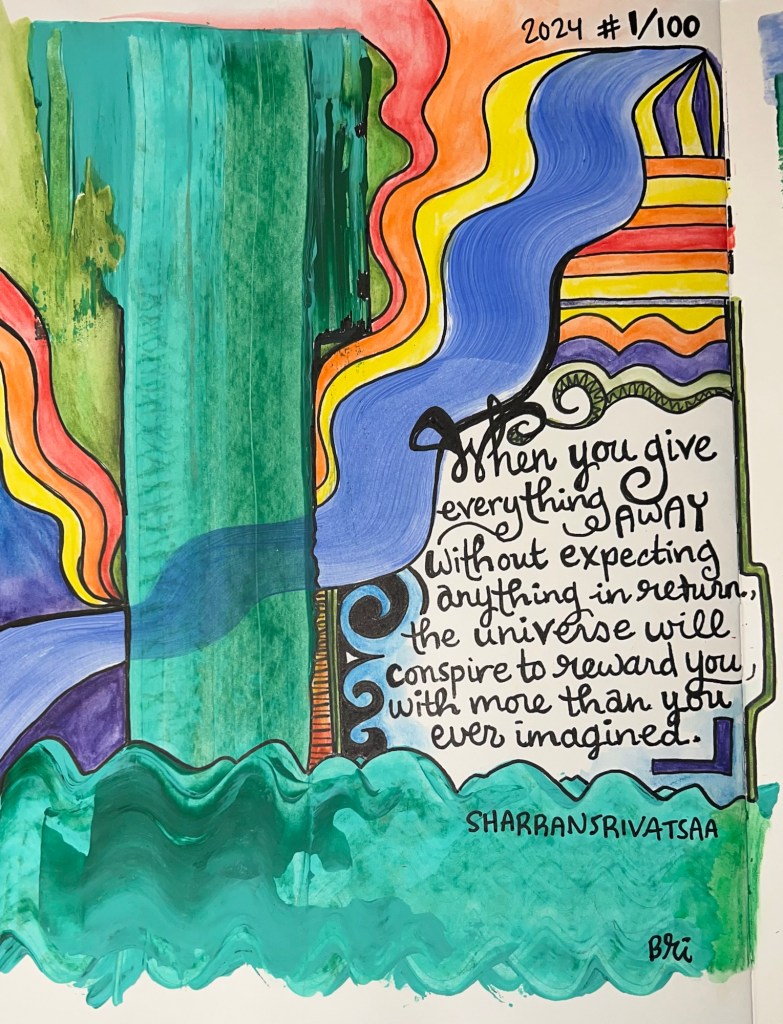 2024 #1/100
When you give
everything AWAY
without expecting
anything in return,
the universe will
conspire to reward you,
with more than you
ever imagined.
SHARRANSRIVATSAA
Bri